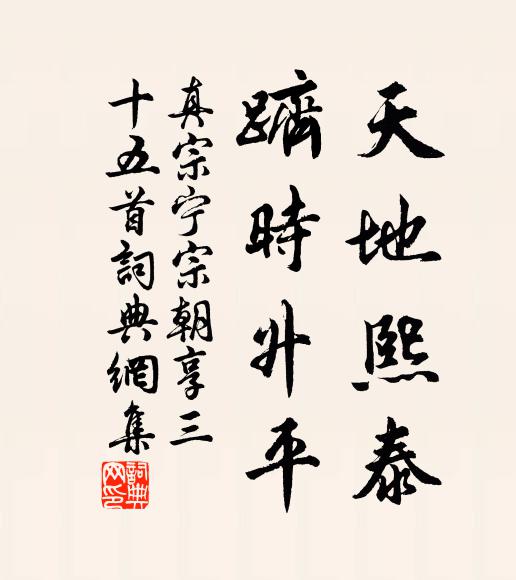 天地熙泰
躋時升平
真宗宁宗朝享三
十五首詞典網集